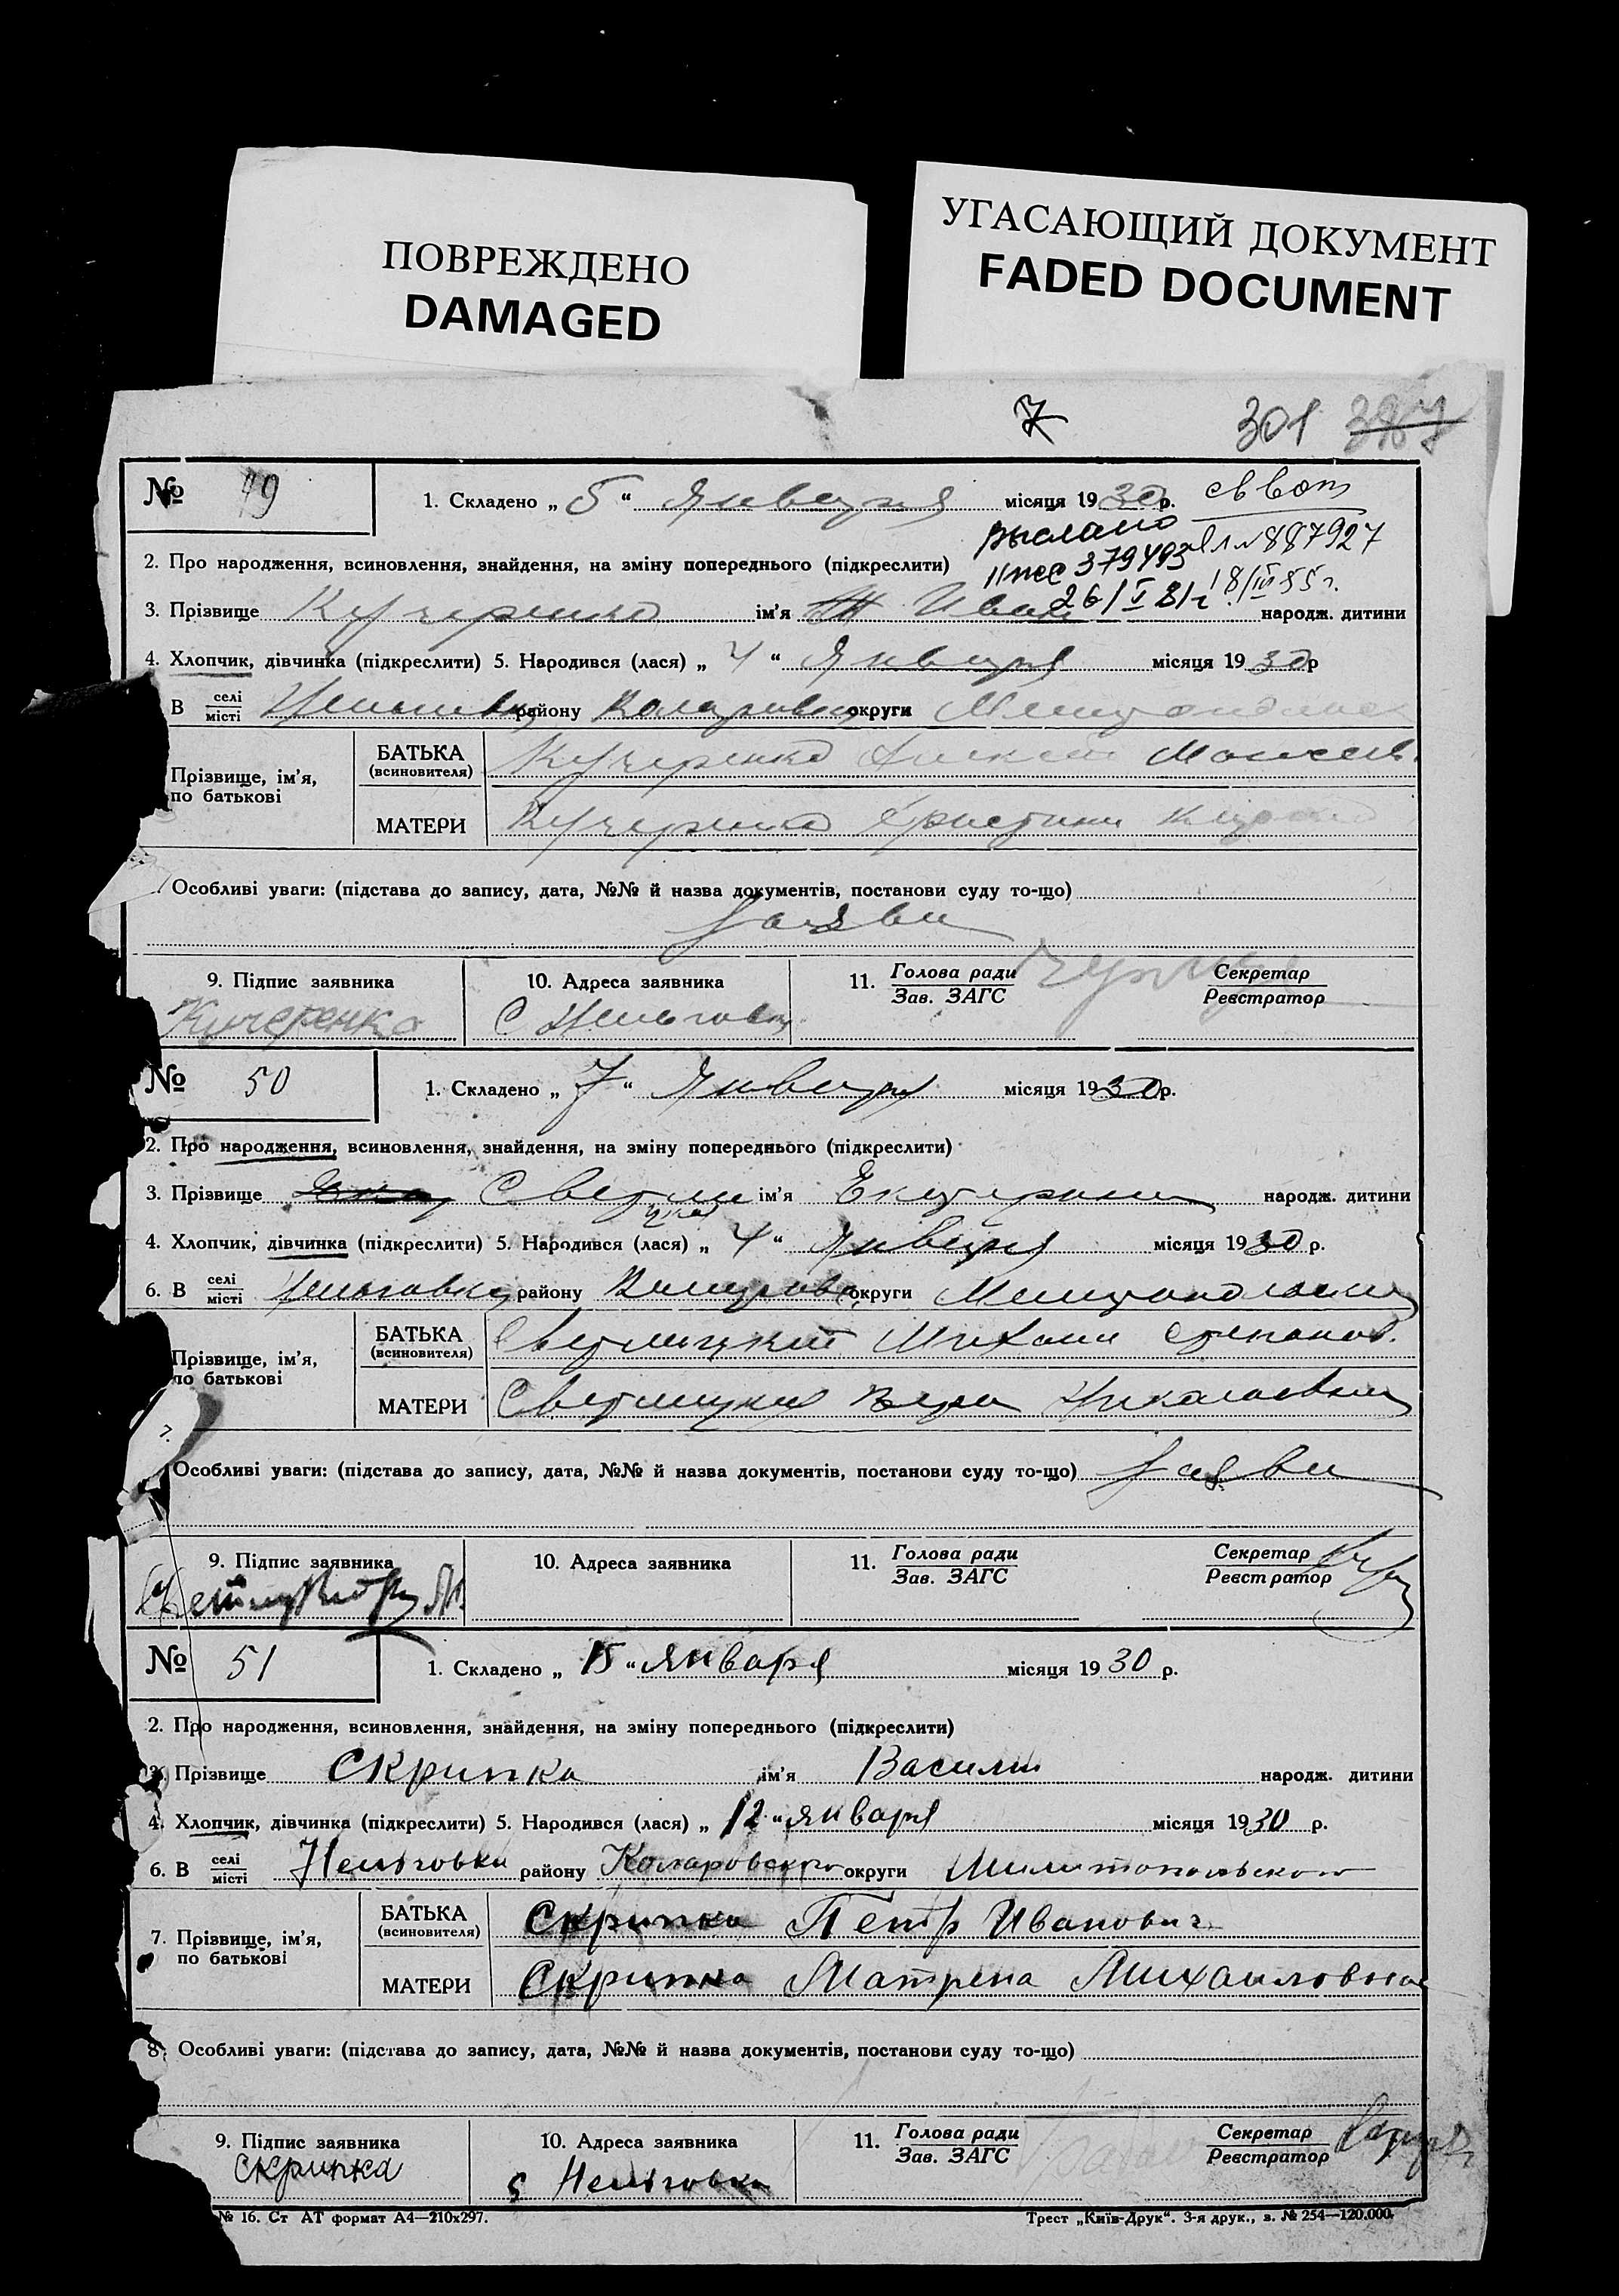 ПОВРЕЖДЕНО
DAMAGED
УГАСАЮЩИЙ ДОКУМЕНТ
FADED DOCUMENT
7
301 387
№ 49
1. Складено „ 5 “ Января місяця 1930 р.
выслано
379493 №887927
26/V 81г. 18/III 55г.
2. Про народження, всиновлення, знайдення, на зміну попереднього (підкреслити)
3. Прізвище Кучеренко ім'я Иван народж. дитини
4. Хлопчик, дівчинка (підкреслити) 5. Народився (лася) „ 4 “ Января місяця 1930 р
В селі/місті Нельговка району округи
Прізвище, ім'я, по батькові
БАТЬКА (всиновителя) Кучеренко Алексей Моисеев.
МАТЕРИ Кучеренко Христина
Особливі уваги: (підстава до запису, дата, №№ й назва документів, постанови суду то-що)
Заяви
9. Підпис заявника 10. Адреса заявника 11. Голова ради/Зав. ЗАГС Секретар/Реєстратор
Кучеренко С Нельговка
№ 50
1. Складено „ 7 “ Января місяця 1930 р.
2. Про народження, всиновлення, знайдення, на зміну попереднього (підкреслити)
3. Прізвище Светлицкая ім'я Екатерина народж. дитини
4. Хлопчик, дівчинка (підкреслити) 5. Народився (лася) „ 4 “ Января місяця 1930 р.
6. В селі/місті Нельговка району округи
Прізвище, ім'я, по батькові
БАТЬКА (всиновителя) Светлицкий Михаил Степанов.
МАТЕРИ Светлицкая Вера Николаевна
7.
Особливі уваги: (підстава до запису, дата, №№ й назва документів, постанови суду то-що) Заяви
9. Підпис заявника 10. Адреса заявника 11. Голова ради/Зав. ЗАГС Секретар/Реєстратор
№ 51
1. Складено „ 15 “ января місяця 1930 р.
2. Про народження, всиновлення, знайдення, на зміну попереднього (підкреслити)
3. Прізвище Скрипка ім'я Василий народж. дитини
4. Хлопчик, дівчинка (підкреслити) 5. Народився (лася) „ 12 “ января місяця 1930 р.
6. В селі/місті Нельговки району Коларовского округи Милитопольского
7. Прізвище, ім'я, по батькові
БАТЬКА (всиновителя) Скрипка Петр Иванович
МАТЕРИ Скрипка Матрена Михаиловная
8. Особливі уваги: (підстава до запису, дата, №№ й назва документів, постанови суду то-що)
9. Підпис заявника 10. Адреса заявника 11. Голова ради/Зав. ЗАГС Секретар/Реєстратор
Скрипка с Нельговка
№ 16. Ст АТ формат А4—210х297. Трест „Київ-Друк“. 3-я друк., з. № 254—120.000.